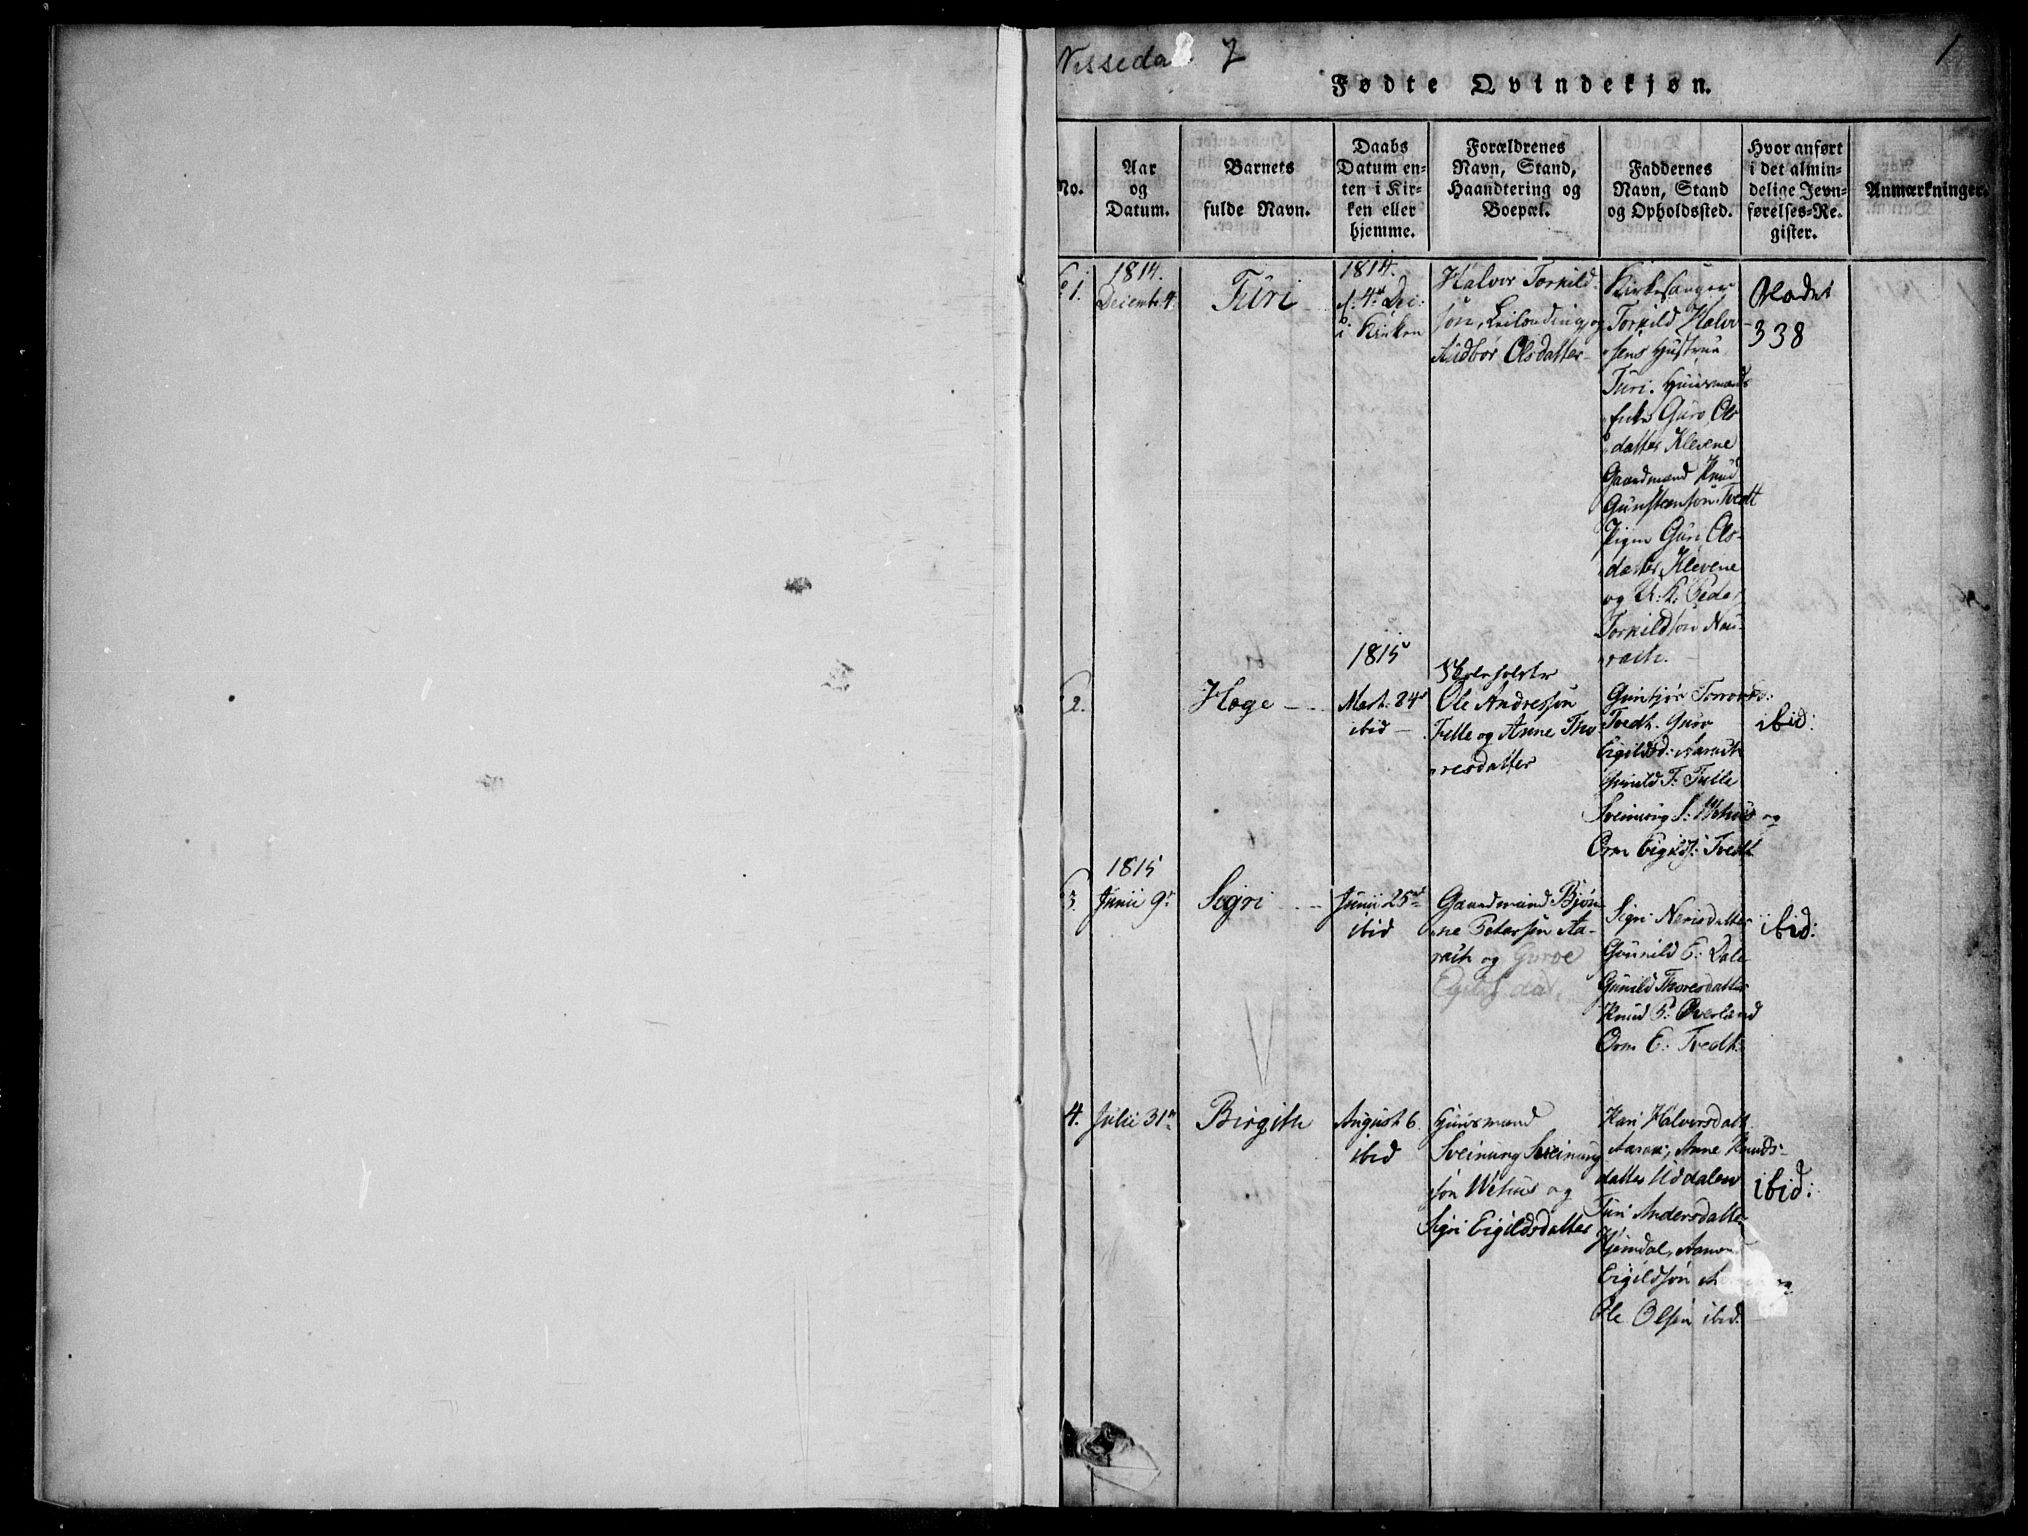 Nissedal 7
1
Fødte Qvindekjøn.
No.
Aar
og
Datum.
Barnets
fulde Navn.
Daabs
Datum en-
ten i Kir-
ken eller
hjemme.
Forældrenes
Navn, Stand,
Haandtering og
Boepæl.
Faddernes
Navn, Stand
og Opholdssted.
Hvor anført
i det almin-
delige Jevn-
førelses-Re-
gister.
Anmærkninger.
1.
1814.
Decemb. 4.
Turi
1814.
d. 4de Dec.
i Kirken
Halvor Torkild-
søn, Leilænding og
Audbor Olsdatter
Kirkesanger
Torkild Halv-
sens Hustrue
Turi. Huusmands
Guro Ols-
datter Klevene
Gaardmand Knud
Gunsteensøn Tvedt
Pigen Guri Ols-
datter Klevene
og U. K. Peder
Torkildsøn Nau-
rack.
Bladet
338
2.
Hæge
1815
Mart. 24
ibid
Skoleholder
Ole Andressøn
Felle og Anne Tho-
resdatter
Tvedt. Guro
Eigildsd:
Gunild T: Felle
Sveinung S: Wehus og
Orm Eigilds: Tvedt
ibid:
3.
1815
Junii 9de
Sigri
Junii 25de
ibid
Gaardmand Bjøn-
ne Petersen Aa-
rack og Guroe
Egilsdat.
Sigri Nerisdatter
Gunild E: Dale
Gunild Thoresdatter
Knud P: Øverland
Orm E: Tvedt.
ibid:
4.
Julii 31te
Birgith
August 6.
ibid
Huusmand
Sveinung Sveinung-
søn Wehus og
Sigri Eigildsdatter
Kari Halversdatt.
Aarak, Anne Knuds-
datter Uddalen
Turi Andersdatter
Aanund
Eigildsøn
Ole Olsen ibid.
ibid: